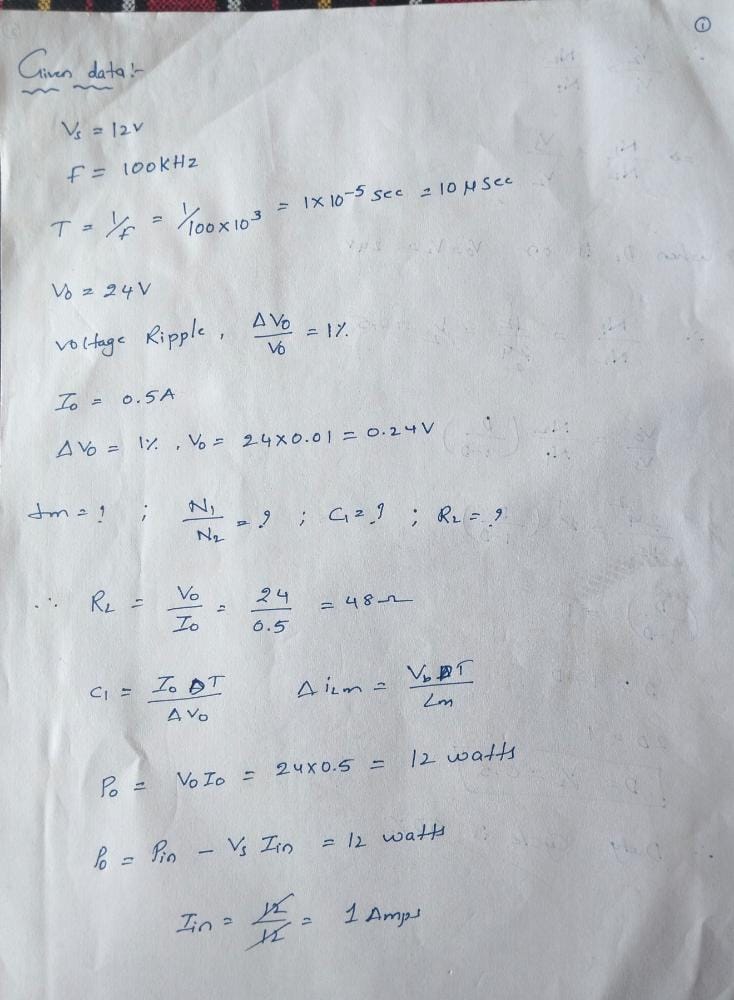 ①
Given data:-
Vs = 12V
f = 100kHz
T = 1/f = 1/100×10³ = 1×10⁻⁵ sec = 10 μsec
Vo = 24V
Voltage Ripple, ΔVo/Vo = 1%.
Io = 0.5A
ΔVo = 1%, Vo = 24×0.01 = 0.24V
Im = ? ; N₁/N₂ = ? ; C₁ = ? ; RL = ?
∴ RL = Vo/Io = 24/0.5 = 48Ω
C₁ = Io DT/ΔVo ΔiLm = Vb DT/Lm
Po = VoIo = 24×0.5 = 12 watts
Po = Pin - Vs Iin = 12 watts
Iin = 12/12 = 1 Amps